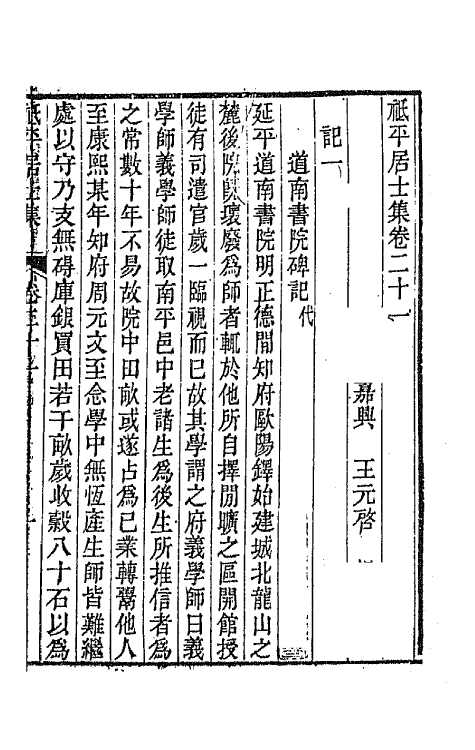 祗平居士集卷二十一
嘉興　王元啓
記一
道南書院碑記代
延平道南書院明正德間知府歐陽鐸始建城北龍山之
麓後院圮壞廢為師者輒於他所自擇閒曠之區開館授
徒有司遣官歲一臨視而已故其學謂之府義學師曰義
學師義學師徒取南平邑中老諸生為後生所推信者為
之常數十年不易故院中田畝或遂占為已業轉鬻他人
至康熙某年知府周元文至念學中無恆產生師皆難繼
處以守乃支無碍庫銀買田若干畝歲收穀八十石以為
祗平居士集